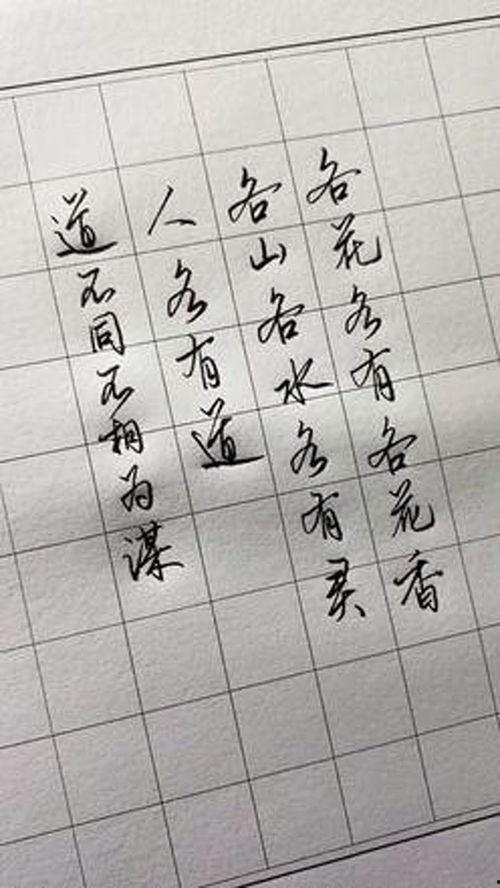 各花各有各花香
各山各水各有灵
人各有道
道不同不相为谋